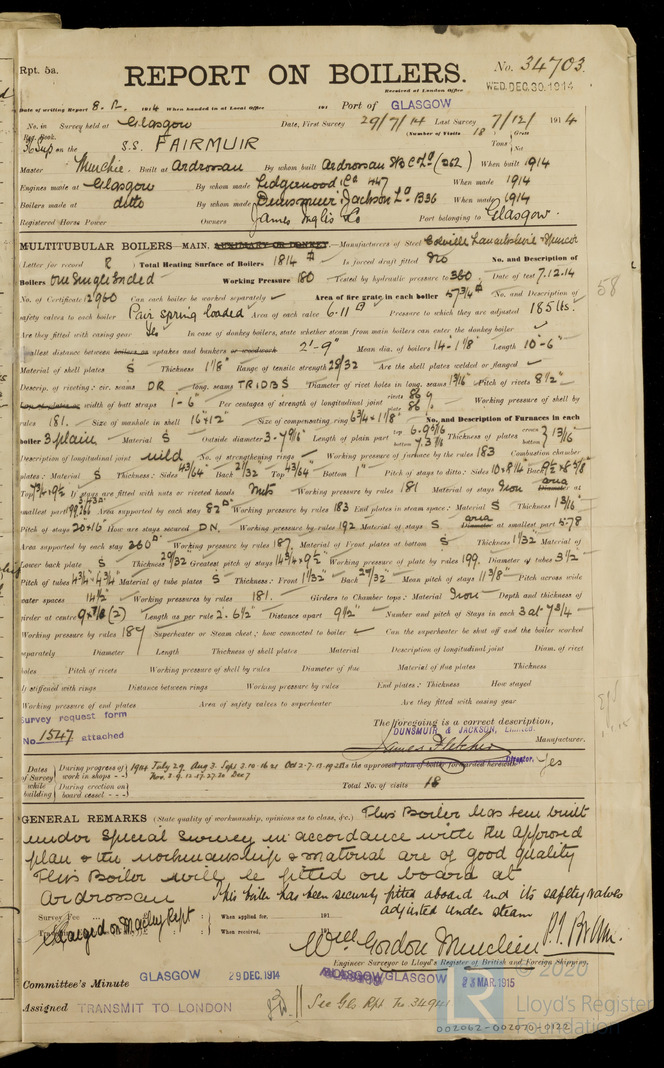 Rpt. 5a.
REPORT ON BOILERS.
No. 34703
Received at London Office
WED. DEC. 30. 1914
Date of writing Report 8. 12. 1914 When handed in at Local Office 191 Port of GLASGOW
No. in Survey held at Glasgow Date, First Survey 29/7/14 Last Survey 7/12/ 1914
Reg. Book.
(Number of Visits 18
Gross
Tons
Net
on the S.S. FAIRMUIR
Master Murchie Built at Ardrossan By whom built Ardrossan When built 1914
Engines made at Glasgow By whom made 447 When made 1914
Boilers made at ditto By whom made Dunsmuir & Jackson Ld B36 When made 1914
Registered Horse Power Owners James Inglis Co Port belonging to Glasgow.
MULTITUBULAR BOILERS—MAIN, AUXILIARY OR DONKEY.—Manufacturers of Steel Colville Lanarkshire
(Letter for record R ) Total Heating Surface of Boilers 1814 Is forced draft fitted No No. and Description of
Boilers One Single Ended Working Pressure 180 Tested by hydraulic pressure to 360 Date of test 7.12.14
No. of Certificate 12960 Can each boiler be worked separately Area of fire grate in each boiler 57 3/4 No. and Description of
safety valves to each boiler Pair spring loaded Area of each valve 6.11 Pressure to which they are adjusted 185 lbs.
Are they fitted with easing gear Yes In case of donkey boilers, state whether steam from main boilers can enter the donkey boiler
Smallest distance between boilers or uptakes and bunkers or woodwork 2'-9" Mean dia. of boilers 14-1 1/8" Length 10-6"
Material of shell plates S Thickness 1 1/8" Range of tensile strength 28/32 Are the shell plates welded or flanged
Descrip. of riveting: cir. seams DR long. seams TRIDBS Diameter of rivet holes in long. seams 1 3/16" Pitch of rivets 8 1/2"
Lap of plates or width of butt straps 1'-6" Per centages of strength of longitudinal joint rivets 86.9 plate 86. Working pressure of shell by
rules 181. Size of manhole in shell 16"x12" Size of compensating ring 6 3/4 x 1 1/8" No. and Description of Furnaces in each
boiler 3 plain Material S Outside diameter Length of plain part top bottom Thickness of plates crown bottom 13/16"
Description of longitudinal joint weld No. of strengthening rings Working pressure of furnace by the rules 183 Combustion chamber
plates: Material S Thickness: Sides 43/64 Back 21/32 Top 43/64" Bottom 1" Pitch of stays to ditto: Sides Back
Top If stays are fitted with nuts or riveted heads Nuts Working pressure by rules 181 Material of stays Iron area Diameter at
smallest part Area supported by each stay 82 Working pressure by rules 183 End plates in steam space: Material S Thickness 1 3/16"
Pitch of stays 20x16" How are stays secured DN. Working pressure by rules 192 Material of stays S area Diameter at smallest part 5.78
Area supported by each stay 360 Working pressure by rules 187 Material of Front plates at bottom S Thickness 1 1/32" Material of
Lower back plate S Thickness 29/32 Greatest pitch of stays 14 3/4 x 9 1/2" Working pressure of plate by rules 199. Diameter of tubes 3 1/2"
Pitch of tubes 4 3/4" x 4 3/4" Material of tube plates S Thickness: Front 1 1/32" Back Mean pitch of stays 11 3/8" Pitch across wide
water spaces 14 1/2" Working pressures by rules 181. Girders to Chamber tops: Material Iron Depth and thickness of
girder at centre 9 x 7/8 (2) Length as per rule 2'. 6 1/2" Distance apart 9 1/2" Number and pitch of Stays in each 3 at 7 3/4
Working pressure by rules 187 Superheater or Steam chest; how connected to boiler Can the superheater be shut off and the boiler worked
separately Diameter Length Thickness of shell plates Material Description of longitudinal joint Diam. of rivet
holes Pitch of rivets Working pressure of shell by rules Diameter of flue Material of flue plates Thickness
If stiffened with rings Distance between rings Working pressure by rules End plates: Thickness How stayed
Working pressure of end plates Area of safety valves to superheater Are they fitted with easing gear
58
Survey request form
No. 1547 attached
The foregoing is a correct description,
DUNSMUIR & JACKSON, Limited.
James Fletcher Manufacturer.
Director.
Dates of Survey while building
During progress of work in shops - - 1914 July 29 Aug 3. Sept 3.10.16.21 Oct 2.7.13.19.28 Nov. 3.9.12.17.27.30 Dec 7
During erection on board vessel - - -
Is the approved plan of boiler forwarded herewith Yes
Total No. of visits 18
GENERAL REMARKS (State quality of workmanship, opinions as to class, &c.) This Boiler has been built
under Special Survey in accordance with the approved
plan & the workmanship & material are of good quality
This Boiler will be fitted on board at
Ardrossan This boiler has been securely fitted aboard and its safety valves
adjusted under steam
Survey Fee ... When applied for, 191
Charged on Machy Rept
When received, 191
Wm Gordon
Engineer Surveyor to Lloyd's Register of British and Foreign Shipping.
Committee's Minute GLASGOW 29 DEC. 1914 GLASGOW 23 MAR. 1915
Assigned TRANSMIT TO LONDON See Gls Rpt No
© 2020
Lloyd's Register
Foundation
LR
002062-002070-0122